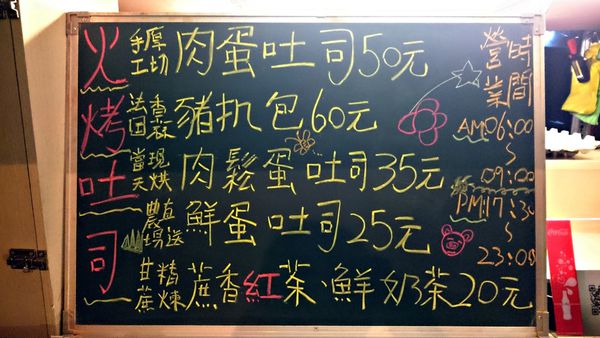 火烤吐司
手工厚切 肉蛋吐司50元
法国香蒜 豬扒包60元
當天現烘 肉鬆蛋吐司35元
農場直送 鮮蛋吐司25元
甘蔗精煉 蔗香紅茶、鮮奶茶20元
營業時間
AM06:00
~
09:00
PM17:30
~
23:00